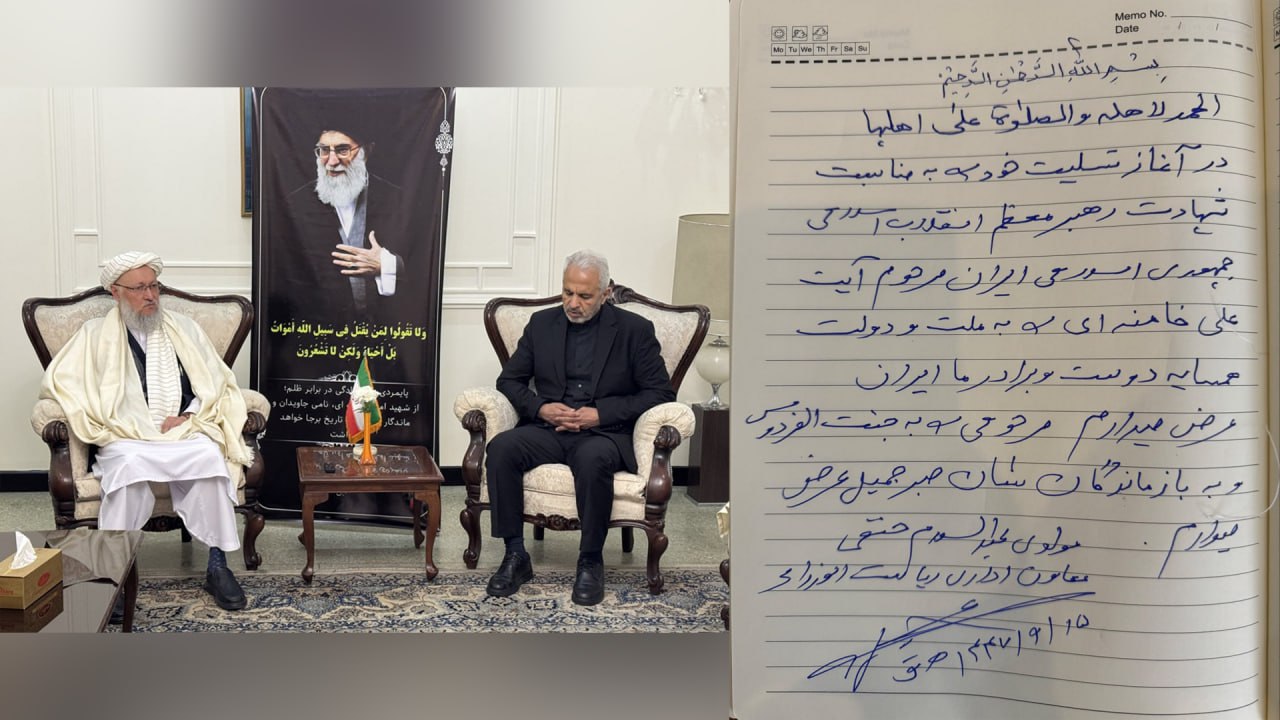 وَلا تَقُولُوا لِمَن يُقْتَلُ فِي سَبِيلِ اللَّهِ أَمْوَاتٌ
بَلْ أَحْيَاءٌ وَلَكِن لا تَشْعُرُونَ
پایمردی در برابر ظلم؛
از شهید ای، نامی جاویدان و
ماندگار تاریخ برجا خواهد
Memo No.
Date / /
Mo Tu We Th Fr Sa Su
بِسْمِ اللهِ الرَّحْمٰنِ الرَّحِيْمِ
الحمد لاهله والصلوة علی اهلها
در آغاز تسلیت خود به مناسبت
شهادت رهبر معظم انقلاب اسلامی
جمهوری اسلامی ایران مرحوم آیت
علی خامنه ای به ملت و دولت
همسایه دوست و برادر ما ایران
عرض میدارم به جنت الفردوس
و به بازماندگان شان صبر جمیل عرض
میدارم.
مولوی عبدالسلام حنفی
معاون اداری ریاست الوزراء
۱۴۴۷/۹/۱۵ هـ ق